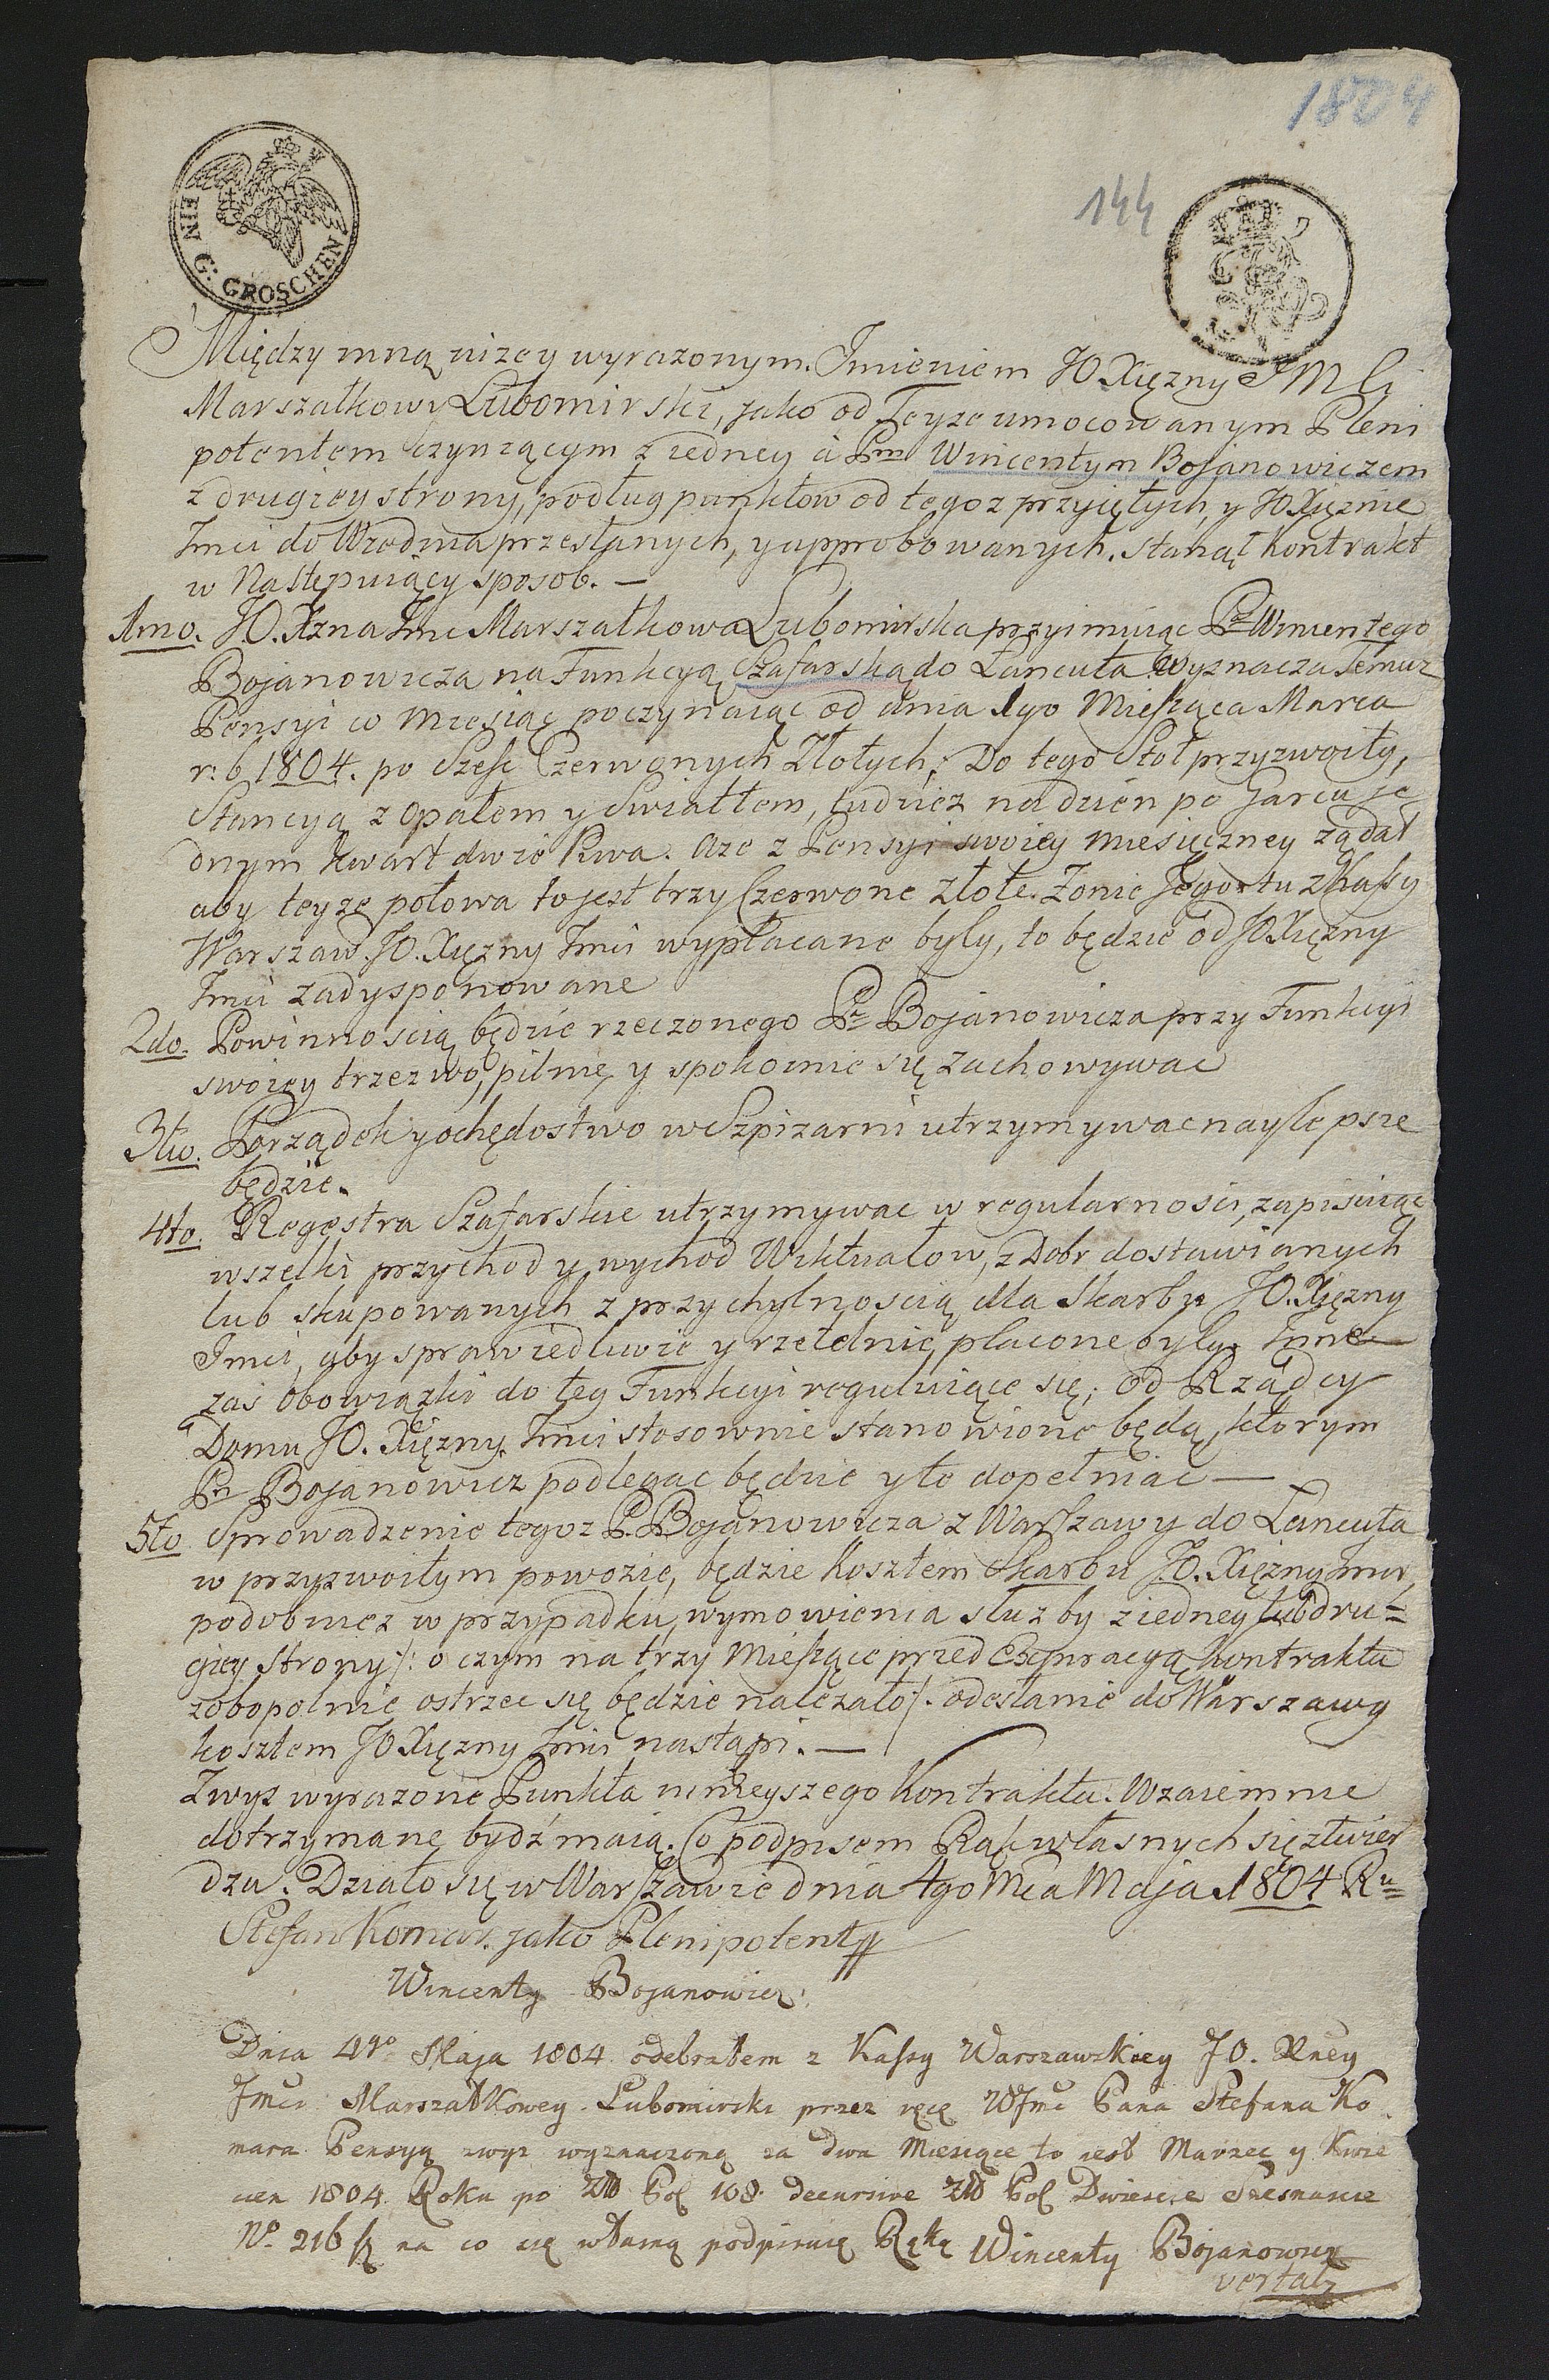 1804
144
EIN G: GROSCHEN
Między mną niżey wyrazonym. Imieniem JO Xiężny JMCi
Marszałkowy Lubomirski, jako od Teyże umocowanym Pleni
potentem czyniącym z iedney à Pm Wincentym Bojanowiczem
z drugiey strony, podług punktow od tegoż przyiętych, y JO Xiężnie
Jmci do Wiednia przesłanych, y approbowanych. stanął Kontrakt
w Następuiący sposob. —
1mo. JO. Xżna Jmc Marszałkowa Lubomirska przyimuiąc Pa Wincentego
Bojanowicza na Funkcyą Szafarską do Łancuta wyznacza Temuż
Pensyi co Miesiąc poczynaiąc od dnia 1go Miesiąca Marca
r: b 1804. po Szesc Czerwonych Złotych. Do tego Stoł przyzwoity,
Stancyą z Opałem y Swiatłem, tudzież na dzień po Garcu je
dnym kwart dwie Piwa. Aże z Pensyi swoiey miesięczney żądał
aby teyże połowa to jest trzy Czerwone złote. Żonie Jego tu z Kassy
Warszaw. JO. Xiężny Jmci wypłacane były, to będzie od JO Xiężny
Jmci zadysponowane
2do. Powinnoscią będzie rzeczonego Pa Bojanowicza przy Funkcyi
swoiey trzezwo, pilnie, y spokoinie się zachowywac
3tio. Porządek y ochędostwo w Szpizarni utrzymywac naylepsze
będzie.
4to. Regestra Szafarskie utrzymywac w regularnosci, zapisuiąc
wszelki przychod y wychod Wiktuałow, z Dobr dostawianych
lub skupowanych z przychylnoscią dla Skarbu JO. Xiężny
Jmci, aby sprawiedliwie y rzetelnie, płacone były. Inne
zaś obowiązki do tey Funkcyi reguluiące się, od Rządcy
Domu JO. Xiężny Jmci stosownie stanowione będą, ktorym
Pn Bojanowicz podlegac będzie y to dopełniac —
5to Sprowadzenie tegoż P. Bojanowicza z Warszawy do Łancuta
w przyzwoitym powozie, będzie kosztem Skarbu JO. Xiężny Jmci,
podobnież w przypadku, wymowienia służby z iedney lub dru=
giey strony /: o czym na trzy Miesiące przed Exspiracyą Kontraktu
zobopolnie ostrzec się będzie należało /. odesłanie do Warszawy
kosztem JO Xiężny Jmci nastąpi. —
Zwyż wyrazone Punkta ninieyszego Kontraktu. Wzaiemnie
dotrzymane bydź maią. Co podpisem Rąk własnych się ztwier
dza. Działo się w Warszawie dnia 4go Mca Maja 1804 Ru
Stefan Komar. jako Plenipotent
Wincenty Bojanowicz.
Dnia 4go Maja 1804 odebrałem z Kassy Warszawskiey JO. Xney
Jmci Marszałkowey Lubomirski przez ręce WJmć Pana Stefana Ko
mara Pensyą zwyż wyznaczoną za dwa Miesiące to iest Marzec y Kwie
cien 1804 Roku po Zło Pol 108. decursive Zło Pol Dwiescie Szesnascie
No. 216 na co się własną podpisuię Ręką Wincenty Bojanowicz
vertatz